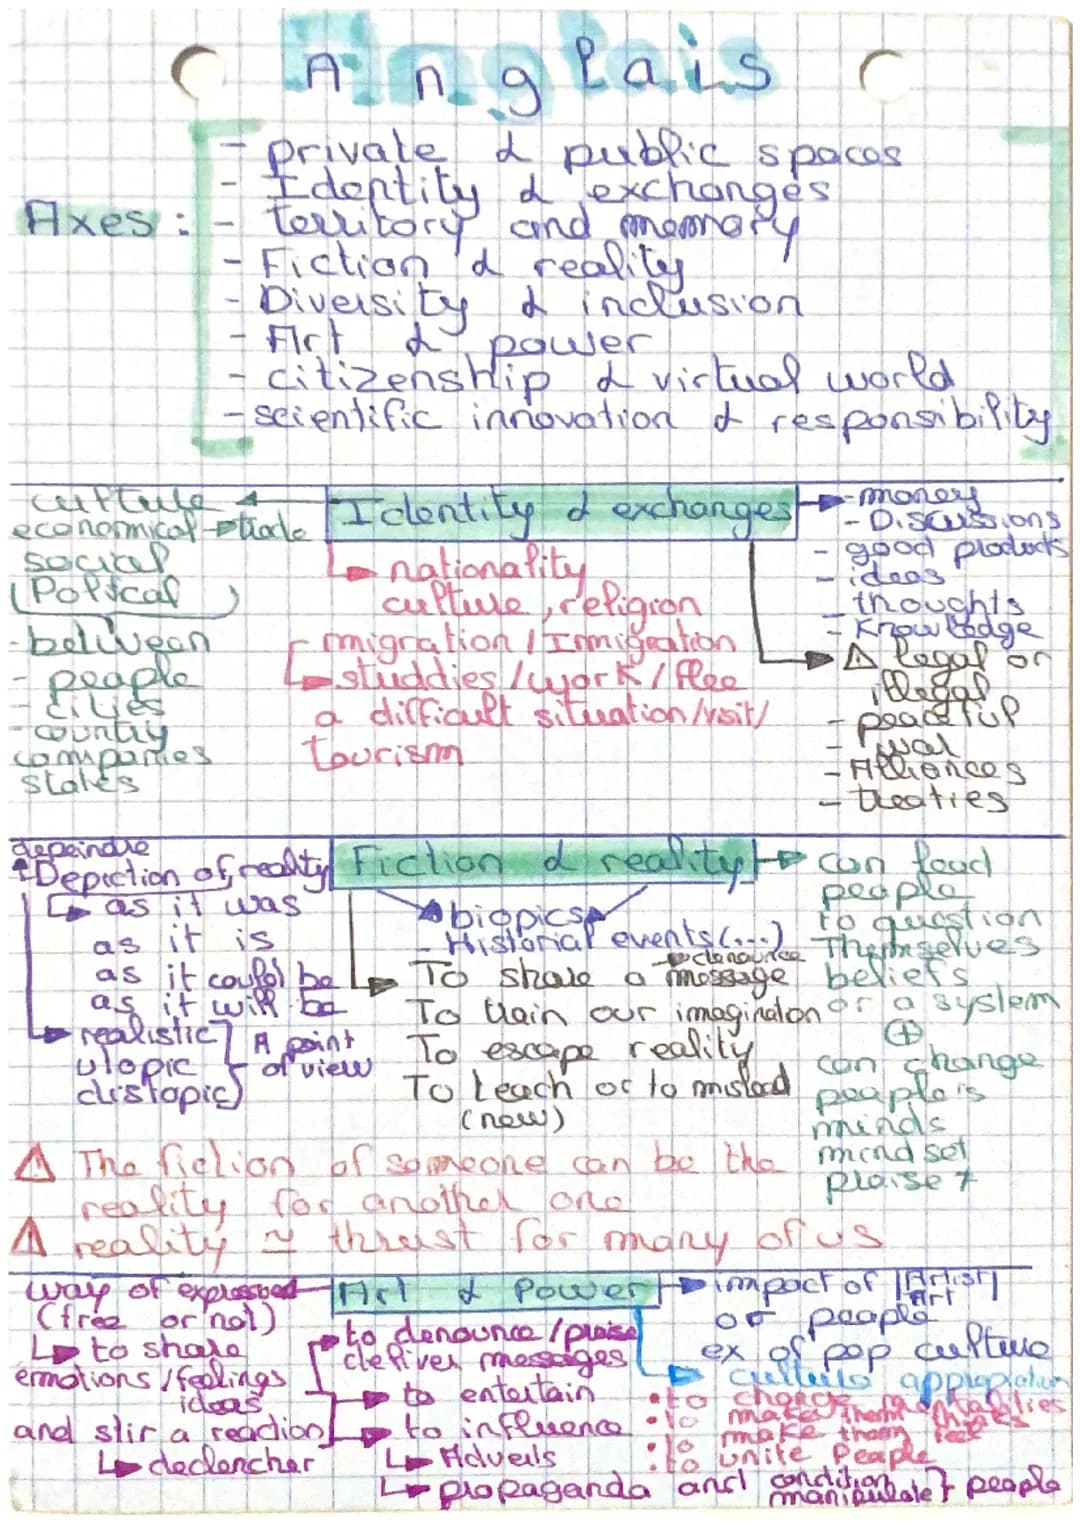 Anglais
Axes :
- private & public spaces
- Identity & exchanges
- territory and memory
- Fiction & reality
- Diversity & inclusion
- Art & power
- citizenship & virtual world
- scientific innovation & responsibility
Identity & exchanges
culture
economical → trade
social
(Poltcal)
- between
- people
- cities
- country
companies
states
nationality
culture, religion
migration / Immigration
studdies / work / flee
a difficult situation/visit/
tourism
- money
- Discussions
- good products
- ideas
- thoughts
- Knowledge
⚠ legal or
illegal
- peaceful
- war
- Alliances
- treaties
Fiction & reality
depeindre
Depiction of reality
as it was
as it is
as it could be
as it will be
realistic
utopic
distopic
A point
of view
biopics
- Historial events (...)
denounce
To share a message
To train our imaginaton
To escape reality
To teach or to mislead
(new)
can lead
people
to question
Themselves
beliefs
or a system
+
can change
people's
minds
mind set
praise ≠
⚠ The fiction of someone can be the
reality for another one
⚠ reality ≃ thrust for many of us
Art & Power
way of expressed
(free or not)
to share
emotions / feelings
ideas
and stir a reaction
declencher
to denounce / praise
deliver messages
to entertain
to influence
Adverts
propaganda and condition
manipulate } people
impact of Artist
Art
or people
ex of pop culture
• to change mentalities
• to make them
• to make them feel
• to unite People